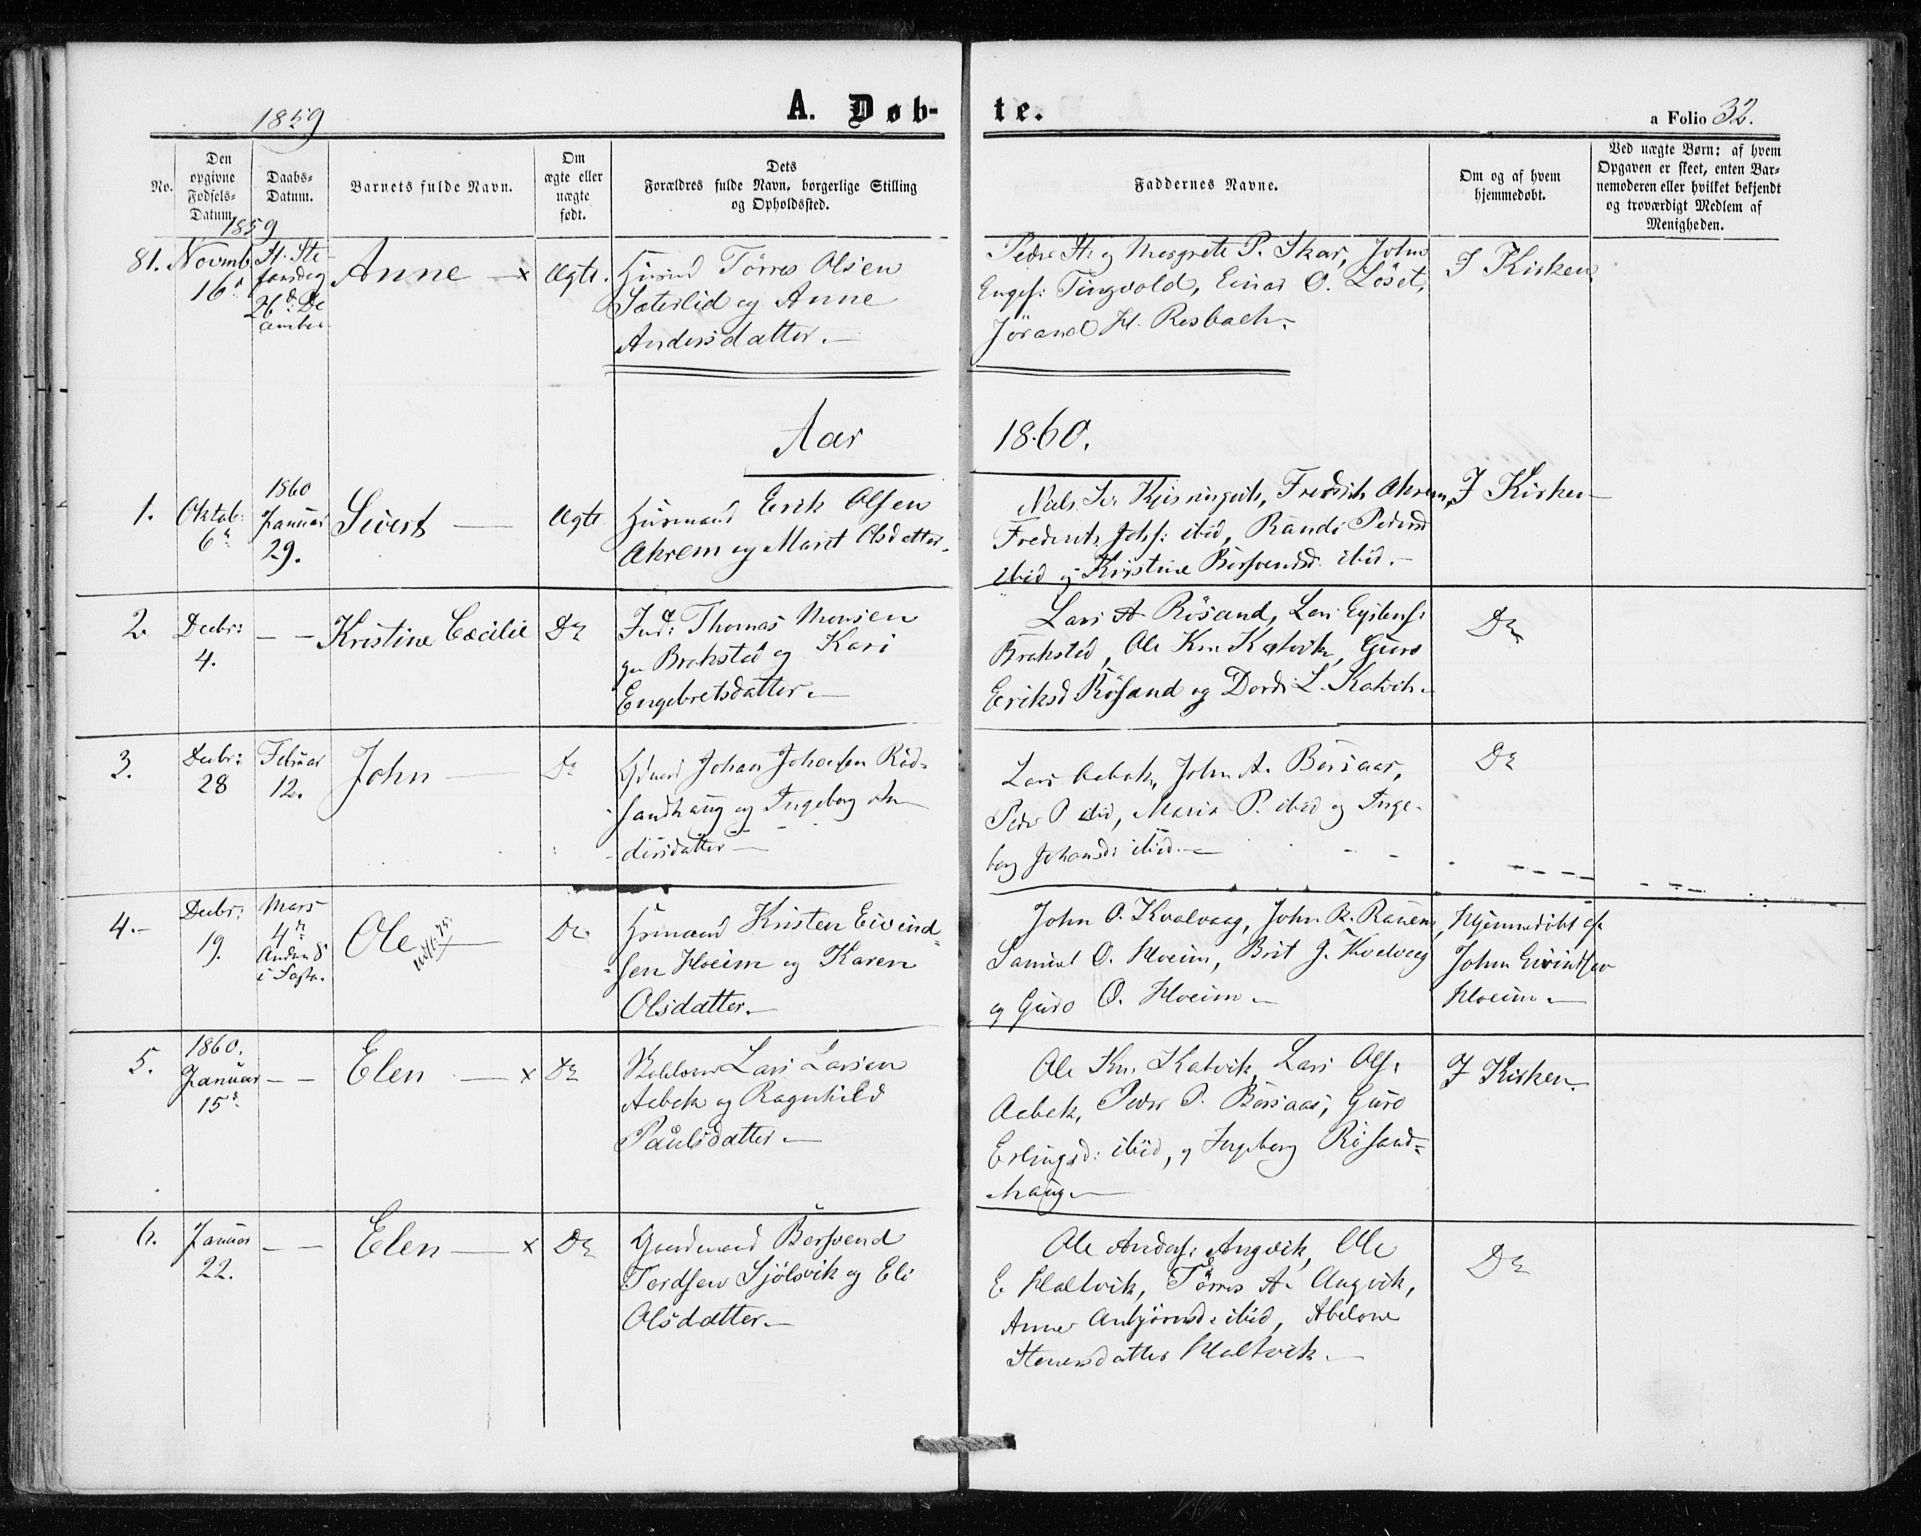 1859
A. Døb-
te.
a Folio 32.
No.
Den opgivne Fødsels-Datum.
Daabs-Datum.
Barnets fulde Navn.
Om ægte eller uægte født.
Dets Forældres fulde Navn, borgerlige Stilling og Opholdssted.
Faddernes Navne.
Om og af hvem hjemmedøbt.
Ved uægte Børn: af hvem Opgaven er skeet, enten Barnemoderen eller hvilket bekjendt og troværdigt Medlem af Menigheden.
1859
81. Novmb. 16d
St. Ste
fansdag
26d De
cember
Anne
Ægte.
Husmd Törres Olsen
Sæterlid og Anne
Andersdatter.
Peder H. og Margrete P. Skar, John
Engeſ: Tingvold, Einar O. Löset,
Jörand H. Resbach.
I Kirken
Aar
1860.
1. Oktob: 6te
1860
Januar
29.
Sivert
Ægte
Husmand Erik Olsen
Akrem og Marit Olsdatter.
Frederik Akrem,
Frederik Johſ: ibid, Randi Pedersd
ibid og Kristine Börsvendsd. ibid.
I Kirken
2 Decbr: 4.
Kristine Cæcilie
Do
Inds Thomas Monsen
Brakstad og Kari
Engebretsdatter.
Lars A Rösand, Lars
Brakstad, Ole Kn. Katvik, Guro
Eriksd Rösand og Dordi L. Katvik.
Do
3. Decbr: 28
Februar
12.
John
Do
Johan Johansen Rö-
sandhaug og Ingeborg An
dersdatter
Lars Aabak, John A. Börsaas,
Peder P ibid, Maria P. ibid og Inge-
borg Johansd: ibid.
Do
4. Decbr: 19.
Mars
4de
Ole
Do
Husmand Kristen Eivind-
sen Hoeim og Karen
Olsdatter.
John O. Kvalvaag, John R.
Samuel O. Hoeim, Brit J. Kvalvaag
og Guro O. Hoeim.
Hjemmedöbt af
John Eivindsen
Hoeim.
5. 1860. Januar 15d
Elen
Do
Lars Larsen
Aabak og Ragnhild
Paulsdatter.
Ole Kn. Katvik, Lars Olſ:
Aabak, Peder P. Börsaas, Guro
Erlingsd: ibid, og Ingeborg Rösand-
haug.
I Kirken.
6. Januar 22.
Elen
Do
Gaardmand Börsvend
Tordsen Sjölsvik og Eli
Olsdatter.
Ole Anderſ: Angvik, Ole
E Haltvik, Törres A. Angvik,
Anne Anbjörnsd: ibid, Abelone
Stenersdatter Haltvik.
Do